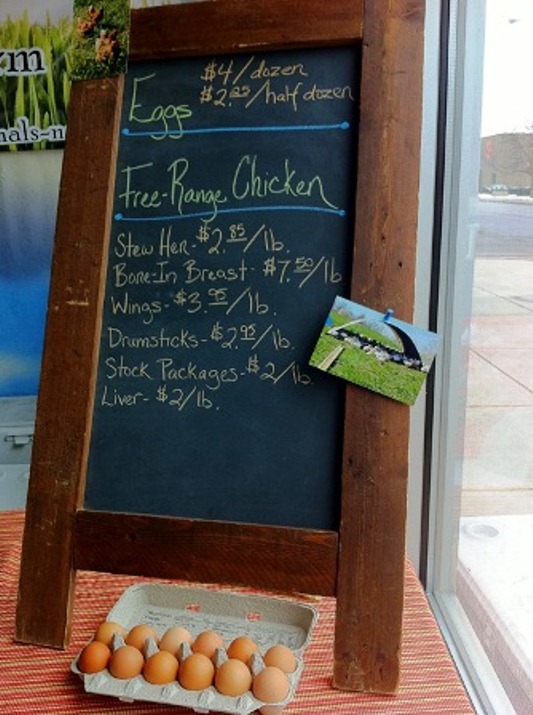 $4/dozen
Eggs $2.25/half dozen
Free-Range Chicken
Stew Hen- $2.85/lb.
Bone-In Breast- $7.50/lb
Wings- $3.95/lb.
Drumsticks- $2.95/lb.
Stock Packages- $2/lb.
Liver- $2/lb.